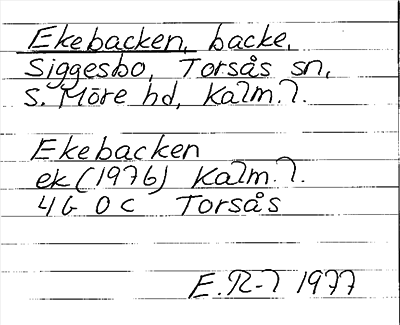 Ekebacken, backe,
Siggesbo, Torsås sn,
S. Möre hd, Kalm. l.
Ekebacken
ek (1976) Kalm. l.
4G 0c Torsås
E. R-l 1977